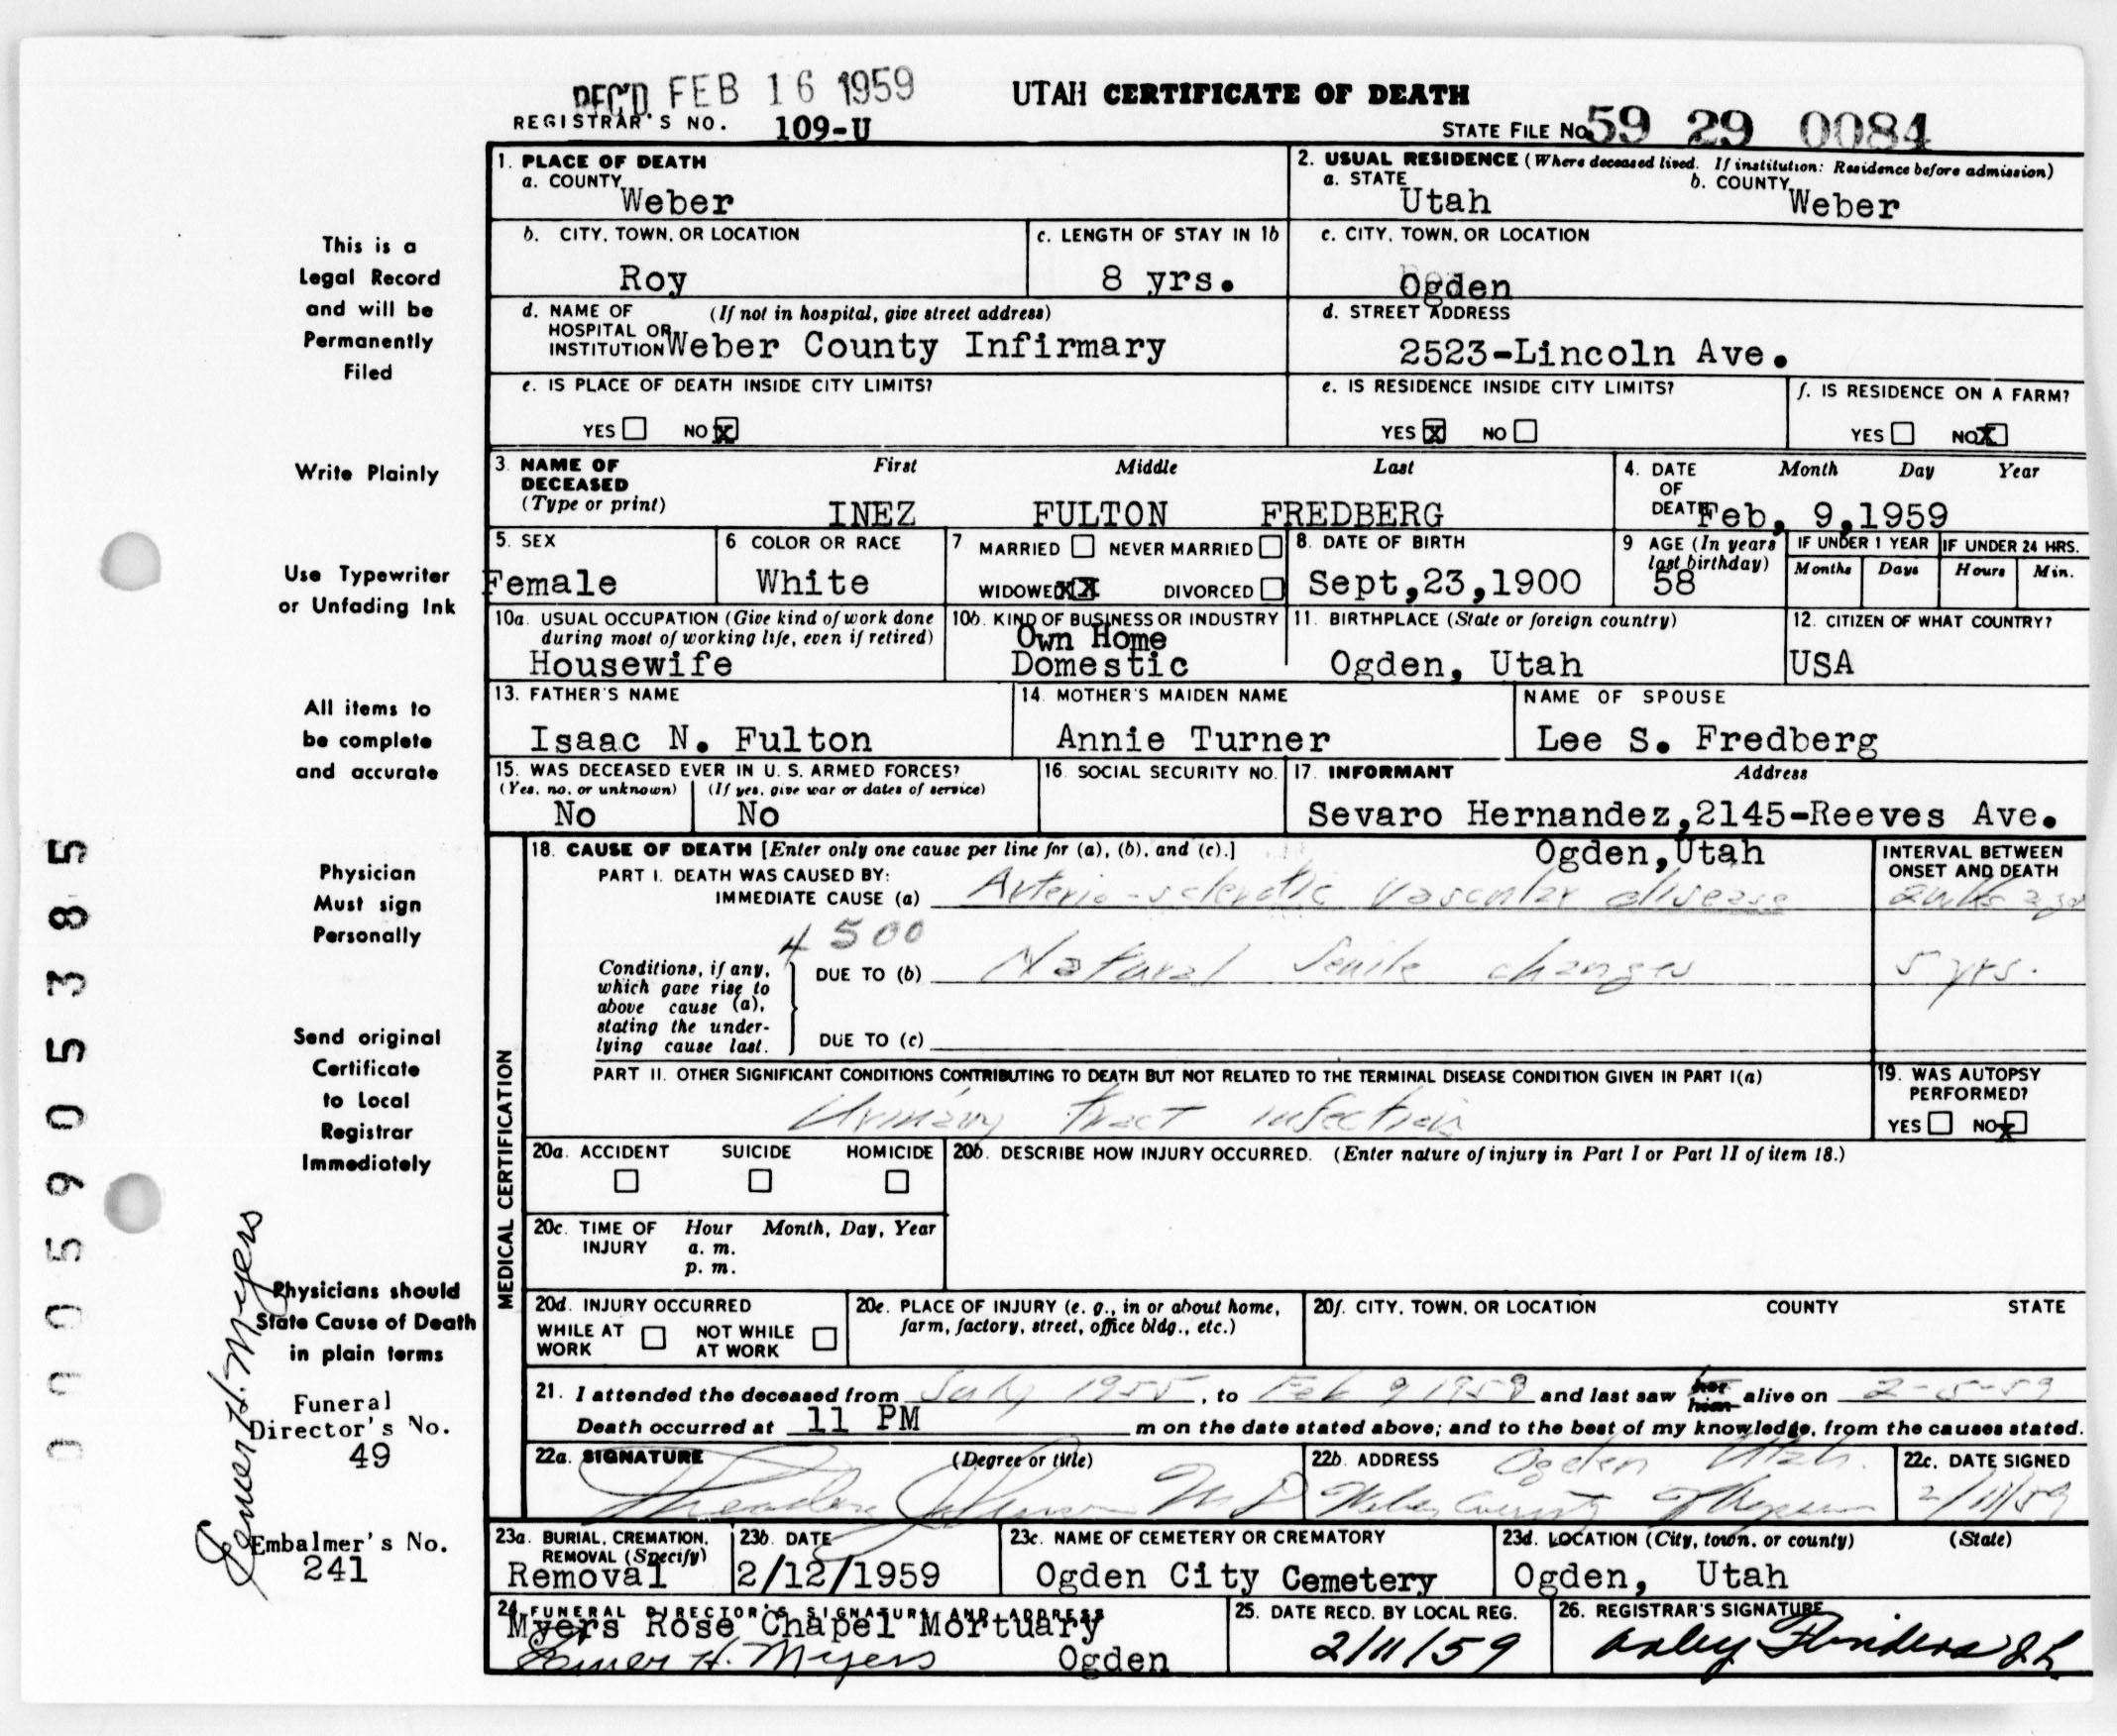 REC'D FEB 16 1959
UTAH CERTIFICATE OF DEATH
REGISTRAR'S NO. 109-U
STATE FILE NO. 59 29 0084
This is a
Legal Record
and will be
Permanently
Filed
Write Plainly
Use Typewriter
or Unfading Ink
All items to
be complete
and accurate
Physician
Must sign
Personally
Send original
Certificate
to Local
Registrar
Immediately
Physicians should
State Cause of Death
in plain terms
Funeral
Director's No.
49
Embalmer's No.
241
H. Myers
0005905385
1. PLACE OF DEATH
a. COUNTY Weber
2. USUAL RESIDENCE (Where deceased lived. If institution: Residence before admission)
a. STATE Utah b. COUNTY Weber
b. CITY, TOWN, OR LOCATION
Roy
c. LENGTH OF STAY IN 1b
8 yrs.
c. CITY, TOWN, OR LOCATION
Ogden
d. NAME OF HOSPITAL OR INSTITUTION (If not in hospital, give street address)
Weber County Infirmary
d. STREET ADDRESS
2523-Lincoln Ave.
e. IS PLACE OF DEATH INSIDE CITY LIMITS?
YES NO X
e. IS RESIDENCE INSIDE CITY LIMITS?
YES X NO
f. IS RESIDENCE ON A FARM?
YES NO X
3. NAME OF DECEASED (Type or print)
First Middle Last
INEZ FULTON FREDBERG
4. DATE OF DEATH Month Day Year
Feb, 9,1959
5. SEX
Female
6 COLOR OR RACE
White
7 MARRIED NEVER MARRIED
WIDOWED XX DIVORCED
8. DATE OF BIRTH
Sept,23,1900
9 AGE (In years last birthday)
58
IF UNDER 1 YEAR
Months Days
IF UNDER 24 HRS.
Hours Min.
10a. USUAL OCCUPATION (Give kind of work done during most of working life, even if retired)
Housewife
10b. KIND OF BUSINESS OR INDUSTRY
Own Home
Domestic
11. BIRTHPLACE (State or foreign country)
Ogden, Utah
12. CITIZEN OF WHAT COUNTRY?
USA
13. FATHER'S NAME
Isaac N. Fulton
14. MOTHER'S MAIDEN NAME
Annie Turner
NAME OF SPOUSE
Lee S. Fredberg
15. WAS DECEASED EVER IN U. S. ARMED FORCES?
(Yes, no, or unknown) (If yes, give war or dates of service)
No No
16. SOCIAL SECURITY NO.
17. INFORMANT Address
Sevaro Hernandez,2145-Reeves Ave.
Ogden,Utah
MEDICAL CERTIFICATION
18. CAUSE OF DEATH [Enter only one cause per line for (a), (b), and (c).]
INTERVAL BETWEEN ONSET AND DEATH
PART I. DEATH WAS CAUSED BY:
IMMEDIATE CAUSE (a) Arterio-sclerotic vascular disease
4500
Conditions, if any, which gave rise to above cause (a), stating the underlying cause last.
DUE TO (b) Natural Senile changes 5 yrs.
DUE TO (c)
PART II. OTHER SIGNIFICANT CONDITIONS CONTRIBUTING TO DEATH BUT NOT RELATED TO THE TERMINAL DISEASE CONDITION GIVEN IN PART I(a)
Urinary tract infection
19. WAS AUTOPSY PERFORMED?
YES NO X
20a. ACCIDENT SUICIDE HOMICIDE
20b. DESCRIBE HOW INJURY OCCURRED. (Enter nature of injury in Part I or Part II of item 18.)
20c. TIME OF INJURY Hour Month, Day, Year
a. m.
p. m.
20d. INJURY OCCURRED
WHILE AT WORK NOT WHILE AT WORK
20e. PLACE OF INJURY (e. g., in or about home, farm, factory, street, office bldg., etc.)
20f. CITY, TOWN, OR LOCATION COUNTY STATE
21. I attended the deceased from July 1955, to Feb 9 1959 and last saw her him alive on 2-5-59
Death occurred at 11 PM m on the date stated above; and to the best of my knowledge, from the causes stated.
22a. SIGNATURE (Degree or title)
Theodore Johnson M D
22b. ADDRESS
Ogden Utah.
Weber County
22c. DATE SIGNED
2/11/59
23a. BURIAL, CREMATION, REMOVAL (Specify)
Removal
23b. DATE
2/12/1959
23c. NAME OF CEMETERY OR CREMATORY
Ogden City Cemetery
23d. LOCATION (City, town, or county) (State)
Ogden, Utah
24. FUNERAL DIRECTOR'S SIGNATURE AND ADDRESS
Myers Rose Chapel Mortuary
H. Myers Ogden
25. DATE RECD. BY LOCAL REG.
2/11/59
26. REGISTRAR'S SIGNATURE